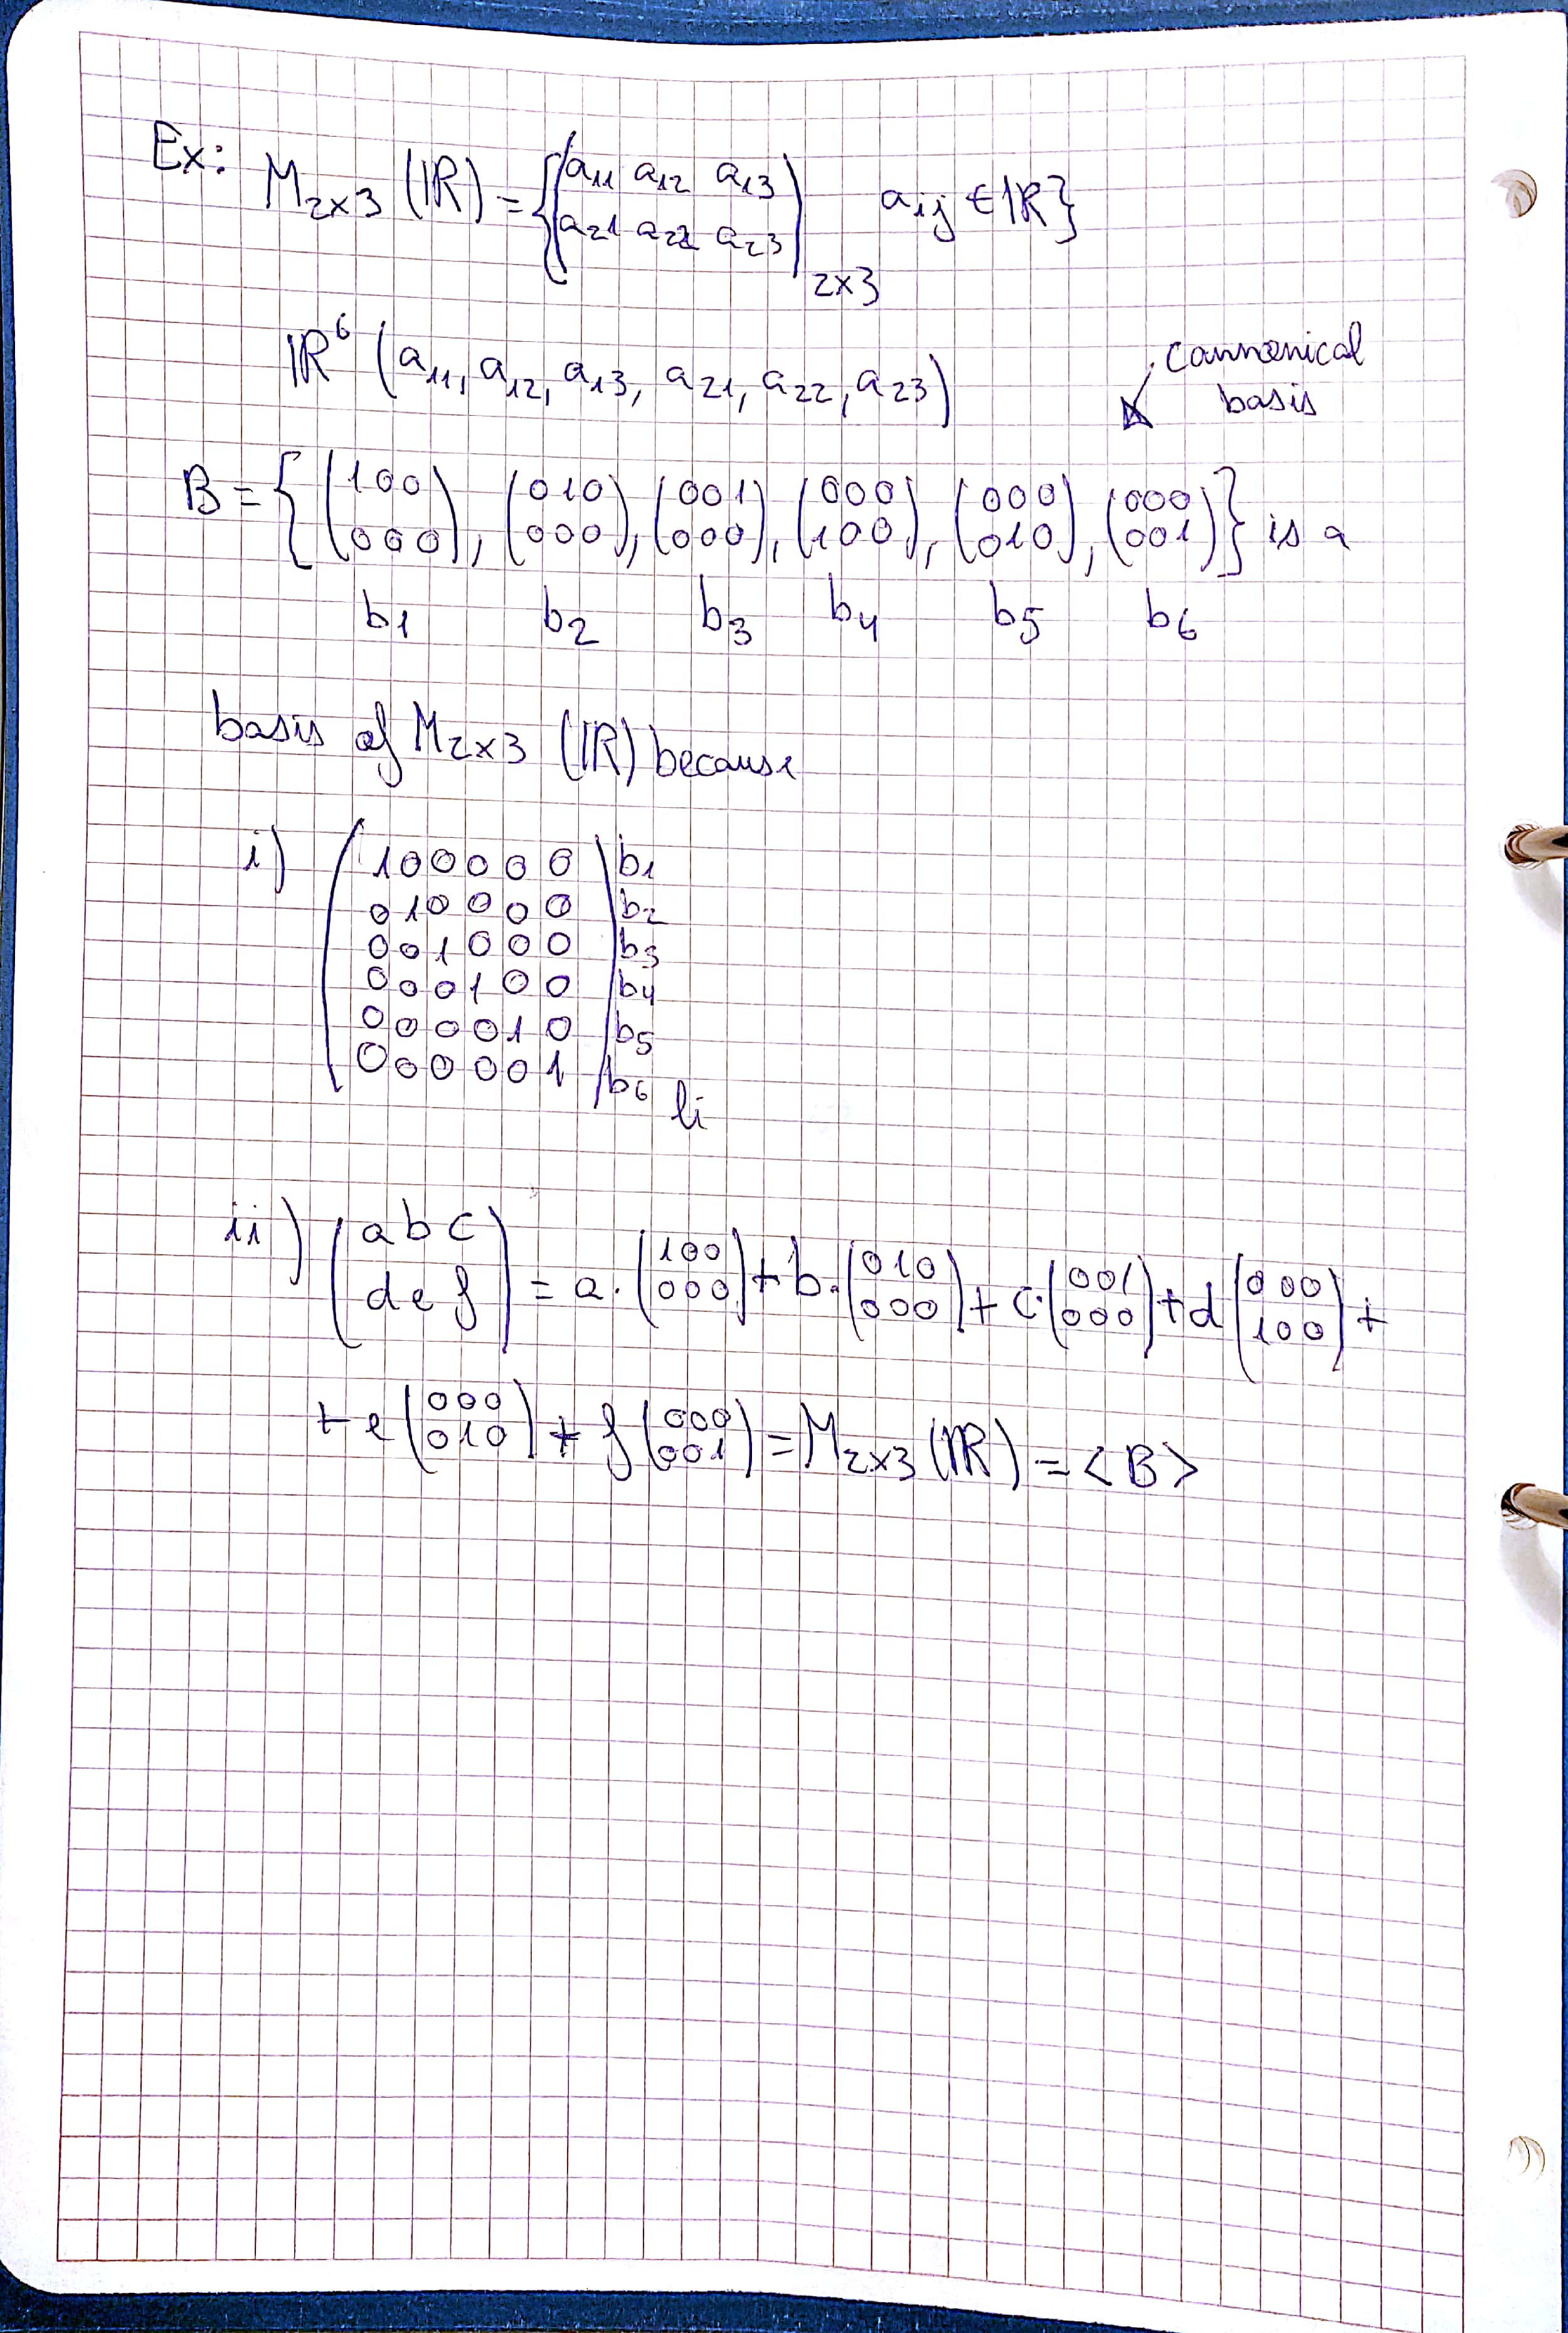 Ex: M₂ₓ₃ (ℝ) = { ( a₁₁ a₁₂ a₁₃
a₂₁ a₂₂ a₂₃ )₂ₓ₃ aᵢⱼ ∈ ℝ }
ℝ⁶ (a₁₁, a₁₂, a₁₃, a₂₁, a₂₂, a₂₃)
cannonical
basis
B = { ( 1 0 0 ), ( 0 1 0 ), ( 0 0 1 ), ( 0 0 0 ), ( 0 0 0 ), ( 0 0 0 )
( 0 0 0 ), ( 0 0 0 ), ( 0 0 0 ), ( 1 0 0 ), ( 0 1 0 ), ( 0 0 1 ) } is a
b₁ b₂ b₃ b₄ b₅ b₆
basis of M₂ₓ₃ (ℝ) because
i) ( 1 0 0 0 0 0 ) b₁
0 1 0 0 0 0 b₂
0 0 1 0 0 0 b₃
0 0 0 1 0 0 b₄
0 0 0 0 1 0 b₅
0 0 0 0 0 1 b₆ li
ii) ( a b c
d e f ) = a · ( 1 0 0 / 0 0 0 ) + b · ( 0 1 0 / 0 0 0 ) + c · ( 0 0 1 / 0 0 0 ) + d ( 0 0 0 / 1 0 0 ) +
+ e ( 0 0 0 / 0 1 0 ) + f ( 0 0 0 / 0 0 1 ) = M₂ₓ₃ (ℝ) = <B>